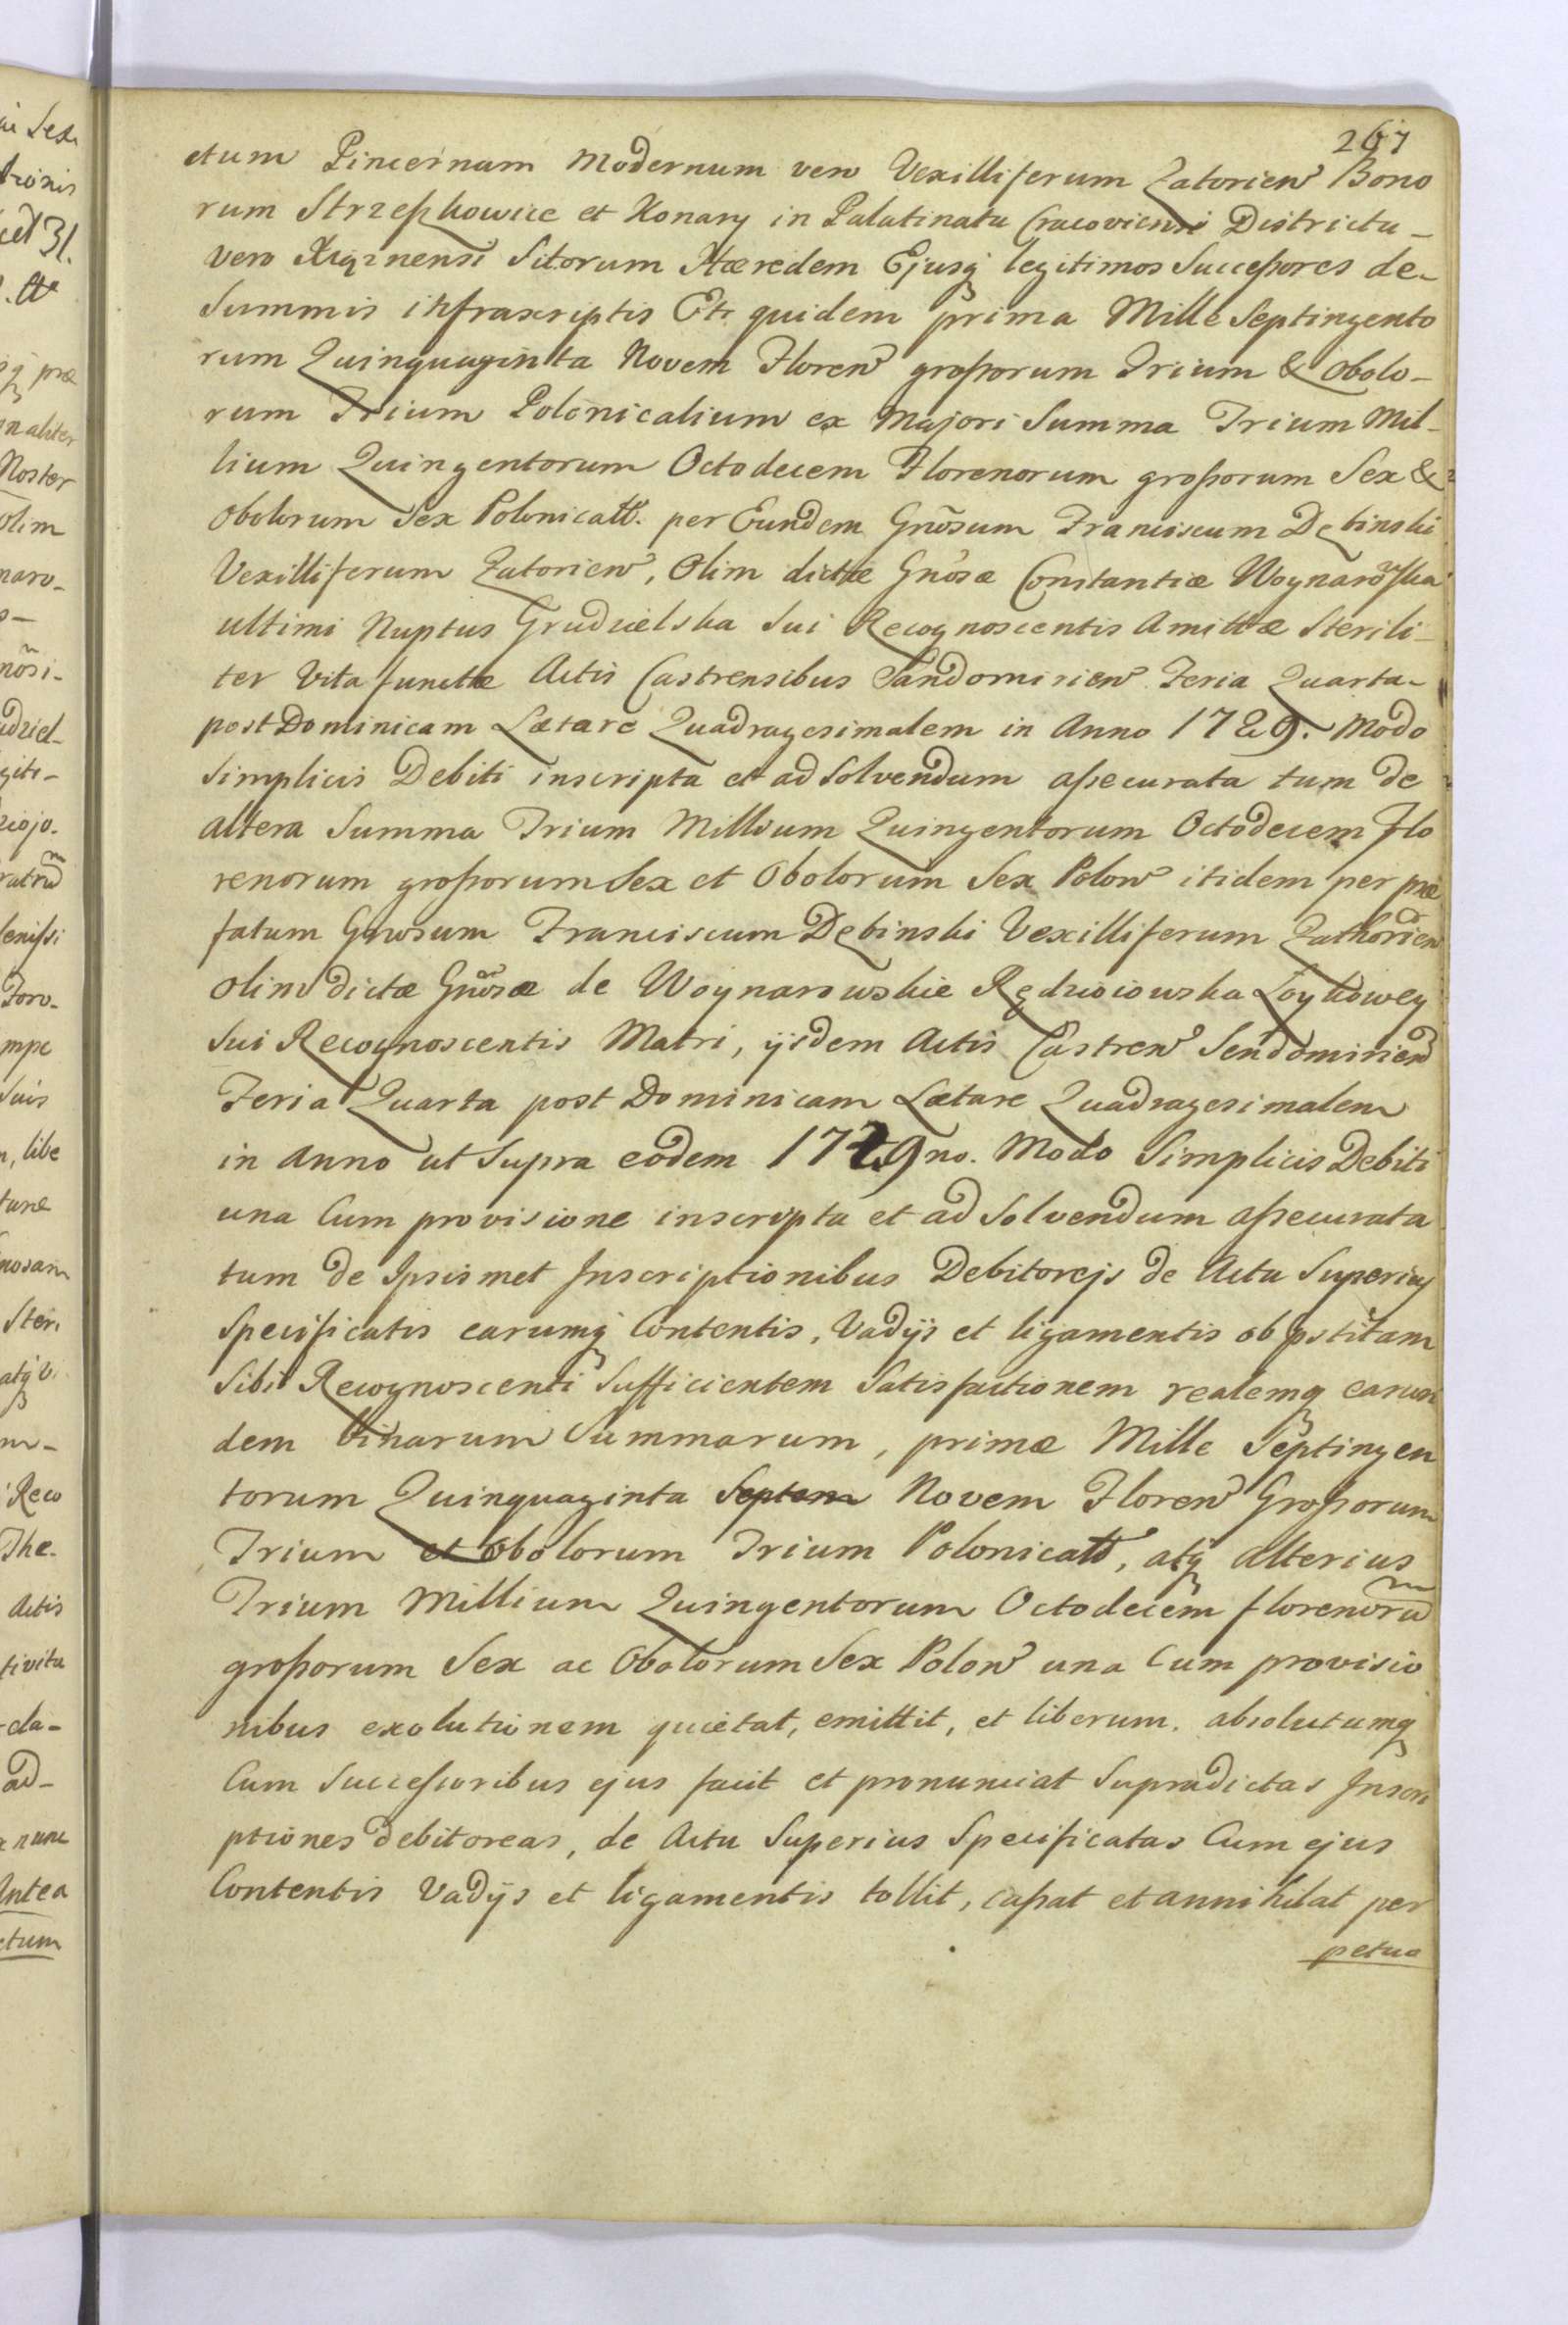 267
etum Pincernam modernum vero Vexilliferum Zatorien Bono
rum Strzeszkowice et Konary in Palatinatu Cracoviensi Districtu_
vero Xiąznensi Sitorum Hæredem Ejusq legitimos Successores de_
Summis infrascriptis Et quidem prima Mille Septingento
rum Quinquaginta Novem Floren grossorum Trium & Obolo_
rum Trium Polonicalium ex Majori Summa Trium Mil_
lium Quingentorum Octodecem Florenorum grossorum Sex &
Obolorum Sex Polonicall. per Eundem Gnõsum Franciscum Dębinski
Vexilliferum Zatorien, Olim dictæ Gnõsæ Constantiæ Woynarowska
ultimi Nuptus Grudzielska Sui Recognoscentis Amittæ Sterili_
ter Vita functæ Actis Castrensibus Sandomirien Feria Quarta_
post Dominicam Lætare Quadragesimalem in Anno 1729. Modo
Simplicis Debiti inscripta et ad Solvendum assecurata tum de
altera Summa Trium Millium Quingentorum Octodecem Flo
renorum grossorum Sex et Obolorum Sex Polon itidem per præ
fatum Gnosum Franciscum Dębinski Vexilliferum Zathorien
olim dictæ Gnõsæ de Woynarowskie Rędziciowska Łoykowey
Sui Recognoscentis Matri, ijsdem Actis Castren Sendomirien
Feria Quarta post Dominicam Lætare Quadragesimalem
in Anno ut Supra eodem 1729no. Modo Simplicis Debiti
una Cum provisione inscripta et ad Solvendum assecurata
tum de Ipsismet Inscriptionibus Debitorejs de Actu Superius
Specificatis earumq Contentis, Vadijs et ligamentis ob pstitam
Sibi Recognoscenti Sufficientem Satisfactionem realemq earun
dem binarum Summarum, primæ Mille Septingen
torum Quinquaginta Septem Novem Floren Grossorum
Trium et Obolorum Trium Polonicall, atq alterius
Trium Millium Quingentorum Octodecem florenorũ
grossorum Sex ac Obolorum Sex Polon una Cum provisio
nibus exolutionem quietat, emittit, et liberum. absolutumq
Cum Successoribus ejus facit et pronunciat Supradictas Inscri
ptiones debitoreas, de Actu Superius Specificatas Cum ejus
Contentis Vadijs et ligamentis tollit, cassat et annihilat per
petuo